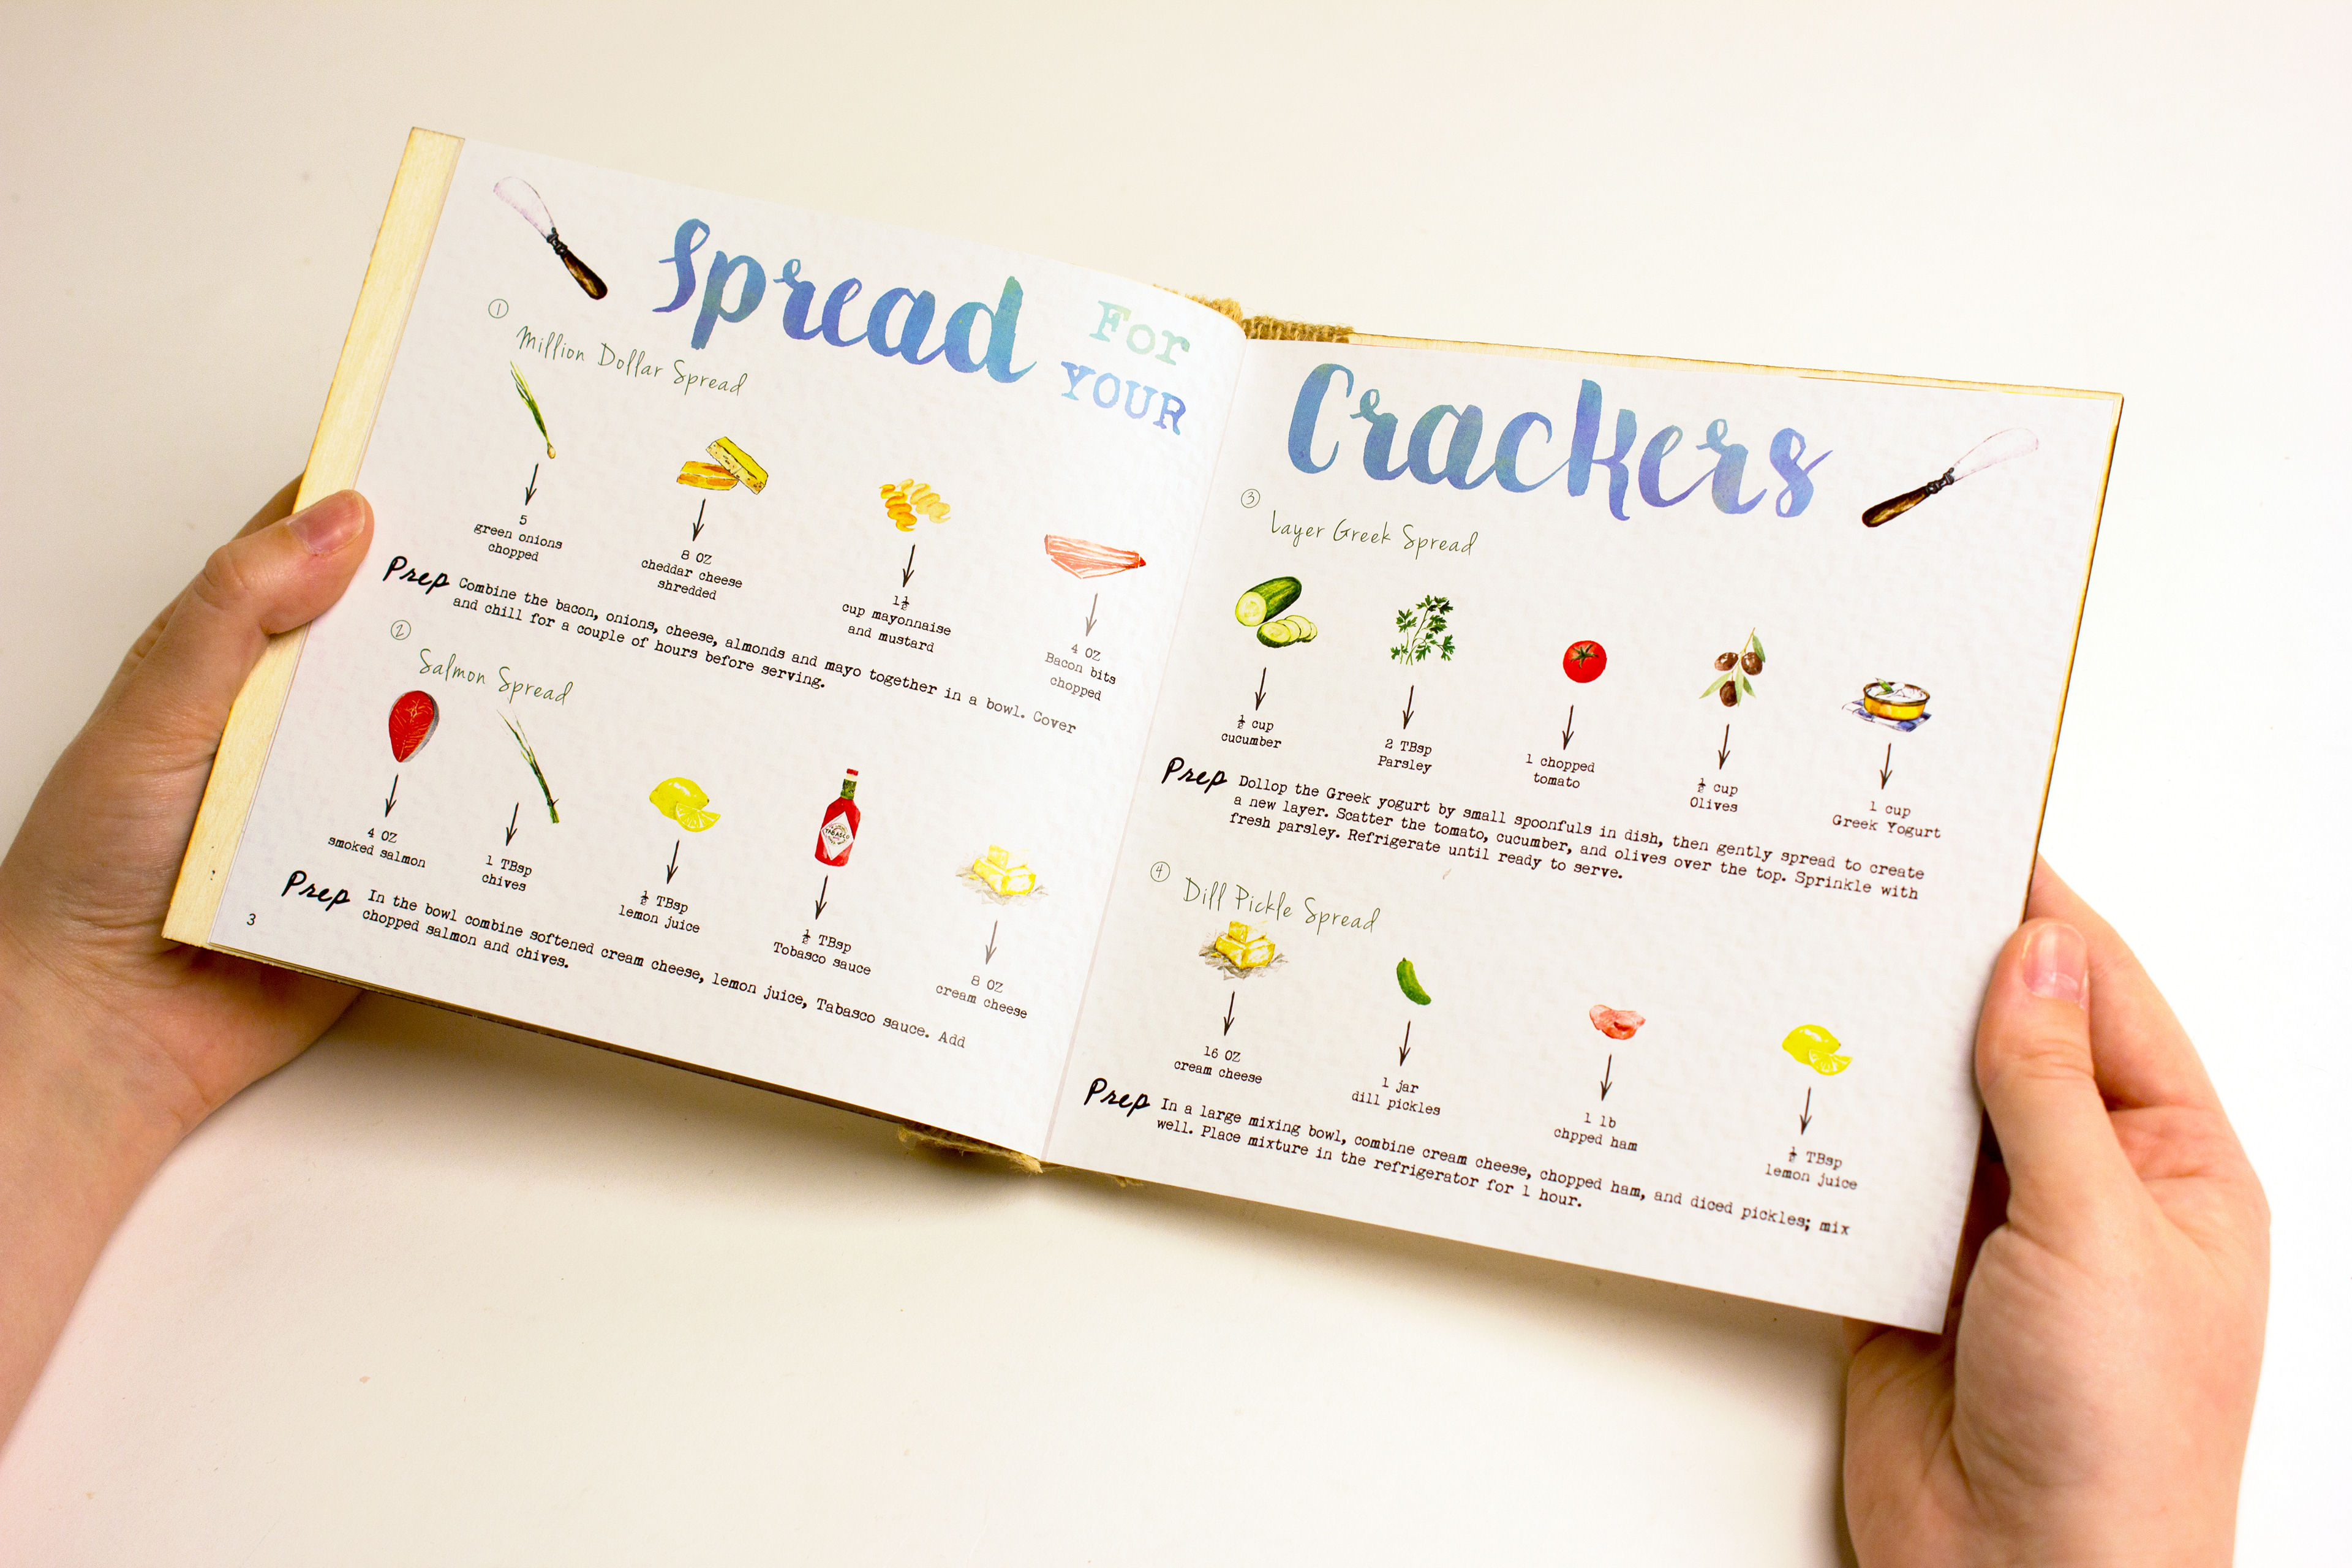 Spread For
YOUR
Crackers
1
Million Dollar Spread
5
green onions
chopped
8 OZ
cheddar cheese
shredded
1½
cup mayonnaise
and mustard
4 OZ
Bacon bits
chopped
Prep Combine the bacon, onions, cheese, almonds and mayo together in a bowl. Cover
and chill for a couple of hours before serving.
2
Salmon Spread
4 OZ
smoked salmon
1 TBsp
chives
½ TBsp
lemon juice
TABASCO
½ TBsp
Tobasco sauce
8 OZ
cream cheese
Prep In the bowl combine softened cream cheese, lemon juice, Tabasco sauce. Add
chopped salmon and chives.
3
3
Layer Greek Spread
½ cup
cucumber
2 TBsp
Parsley
1 chopped
tomato
½ cup
Olives
1 cup
Greek Yogurt
Prep Dollop the Greek yogurt by small spoonfuls in dish, then gently spread to create
a new layer. Scatter the tomato, cucumber, and olives over the top. Sprinkle with
fresh parsley. Refrigerate until ready to serve.
4
Dill Pickle Spread
16 OZ
cream cheese
1 jar
dill pickles
1 lb
chpped ham
½ TBsp
lemon juice
Prep In a large mixing bowl, combine cream cheese, chopped ham, and diced pickles; mix
well. Place mixture in the refrigerator for 1 hour.